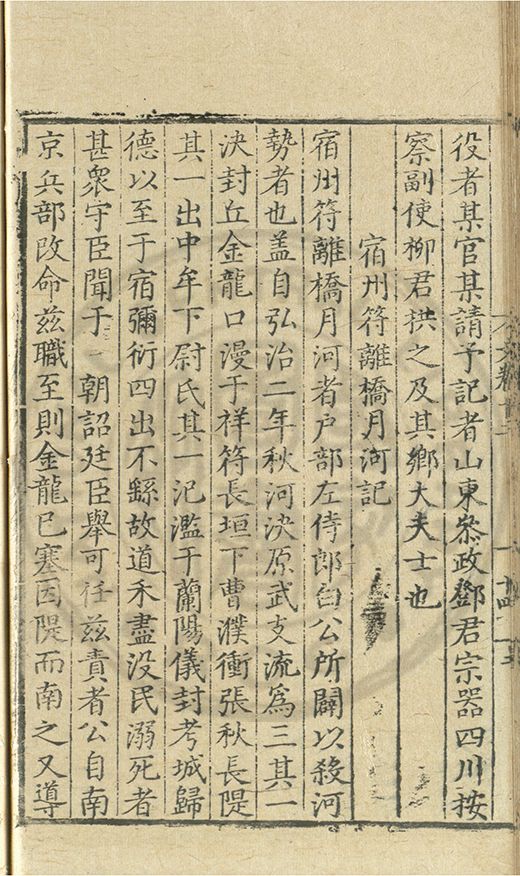 役者某官某請予記者山東叅政鄧君宗器四川按
察副使柳君拱之及其鄉大夫士也
宿州符離橋月河記
宿州符離橋月河者户部左侍郎白公所闢以殺河
勢者也盖自弘治二年秋河决原武支流爲三其一
决封丘金龍口漫于祥符長垣下曹濮衝張秋長隄
其一出中牟下尉氏其一汜濫于蘭陽儀封考城歸
德以至于宿彌衍四出不繇故道禾盡没民溺死者
甚衆守臣聞于 朝詔廷臣舉可任兹責者公自南
京兵部改命兹職至則金龍已塞因隄而南之又導